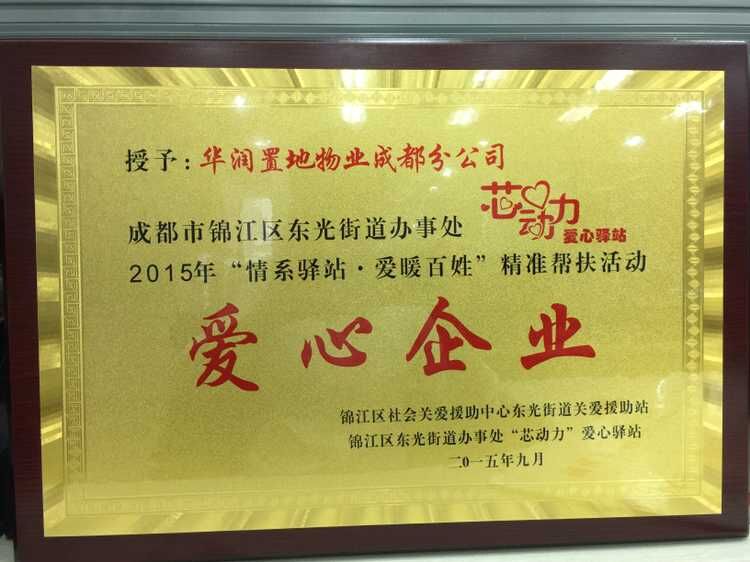 授予：华润置地物业成都分公司
芯动力
爱心驿站
成都市锦江区东光街道办事处
2015年“情系驿站·爱暖百姓”精准帮扶活动
爱心企业
锦江区社会关爱援助中心东光街道关爱援助站
锦江区东光街道办事处“芯动力”爱心驿站
二〇一五年九月